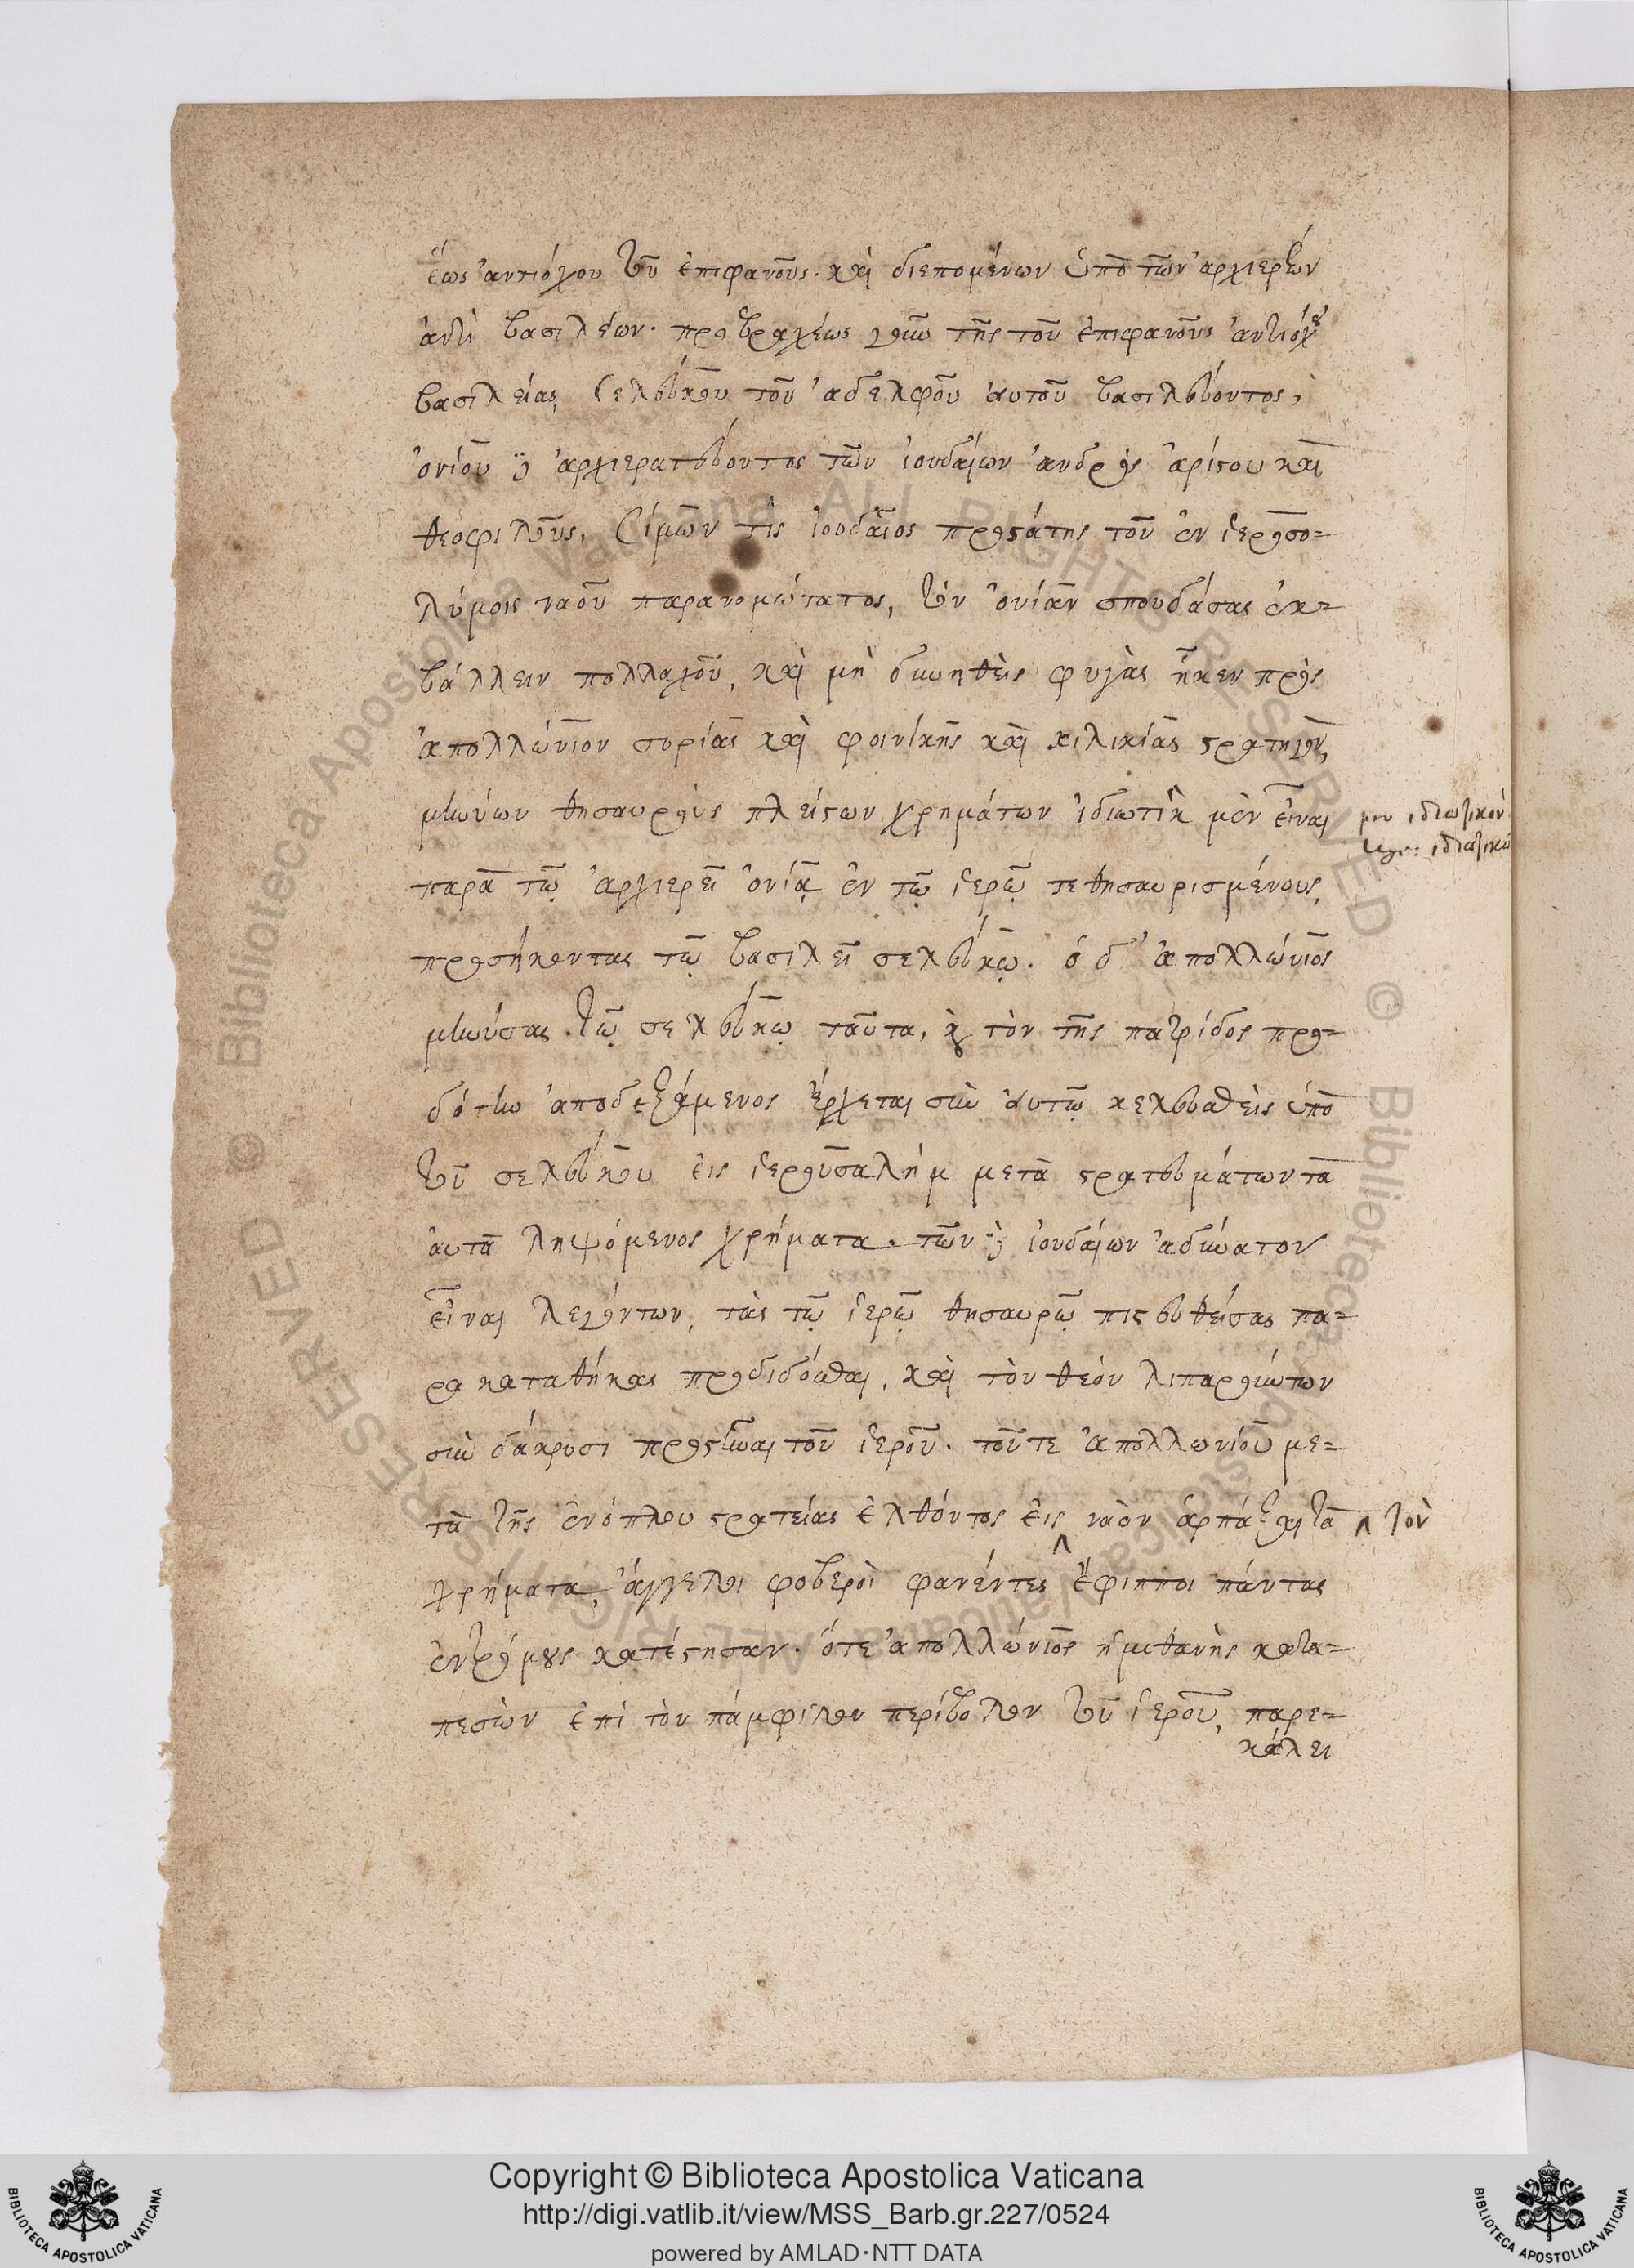 ἕως ἀντιόχου τοῦ ἐπιφανοῦς. καὶ διεπομένων ὑπὸ τῶν ἀρχιερέων
ἀντὶ βασιλέων. πρὸ βραχέως γοῦν τῆς τοῦ ἐπιφανοῦς ἀντιόχου
βασιλείας, Σελεύκου τοῦ ἀδελφοῦ αὐτοῦ βασιλεύοντος,
ὀνίου δὲ ἀρχιερατεύοντος τῶν ἰουδαίων ἀνδρὸς ἀρίστου καὶ
θεοφιλοῦς, Σίμων τὶς ἰουδαῖος προστάτης τοῦ ἐν ἱεροσο=
λύμοις ναοῦ παρανομώτατος, τὸν ὀνίαν σπουδάσας ἐκ=
βάλλειν πολλαχοῦ, καὶ μὴ δυνηθεὶς φυγὰς ἧκεν πρὸς
ἀπολλώνιον συρίας καὶ φοινίκης καὶ κιλικίας στρατηγὸν,
μηνύων θησαυροὺς πλείστων χρημάτων ἰδιωτικ μὲν εἶναι
παρὰ τῷ ἀρχιερεῖ ὀνίᾳ ἐν τῷ ἱερῷ τεθησαυρισμένους,
προσήκοντας τῷ βασιλεῖ σελεύκῳ. ὁ δ' ἀπολλώνιος
μηνύσας τῷ σελεύκῳ ταῦτα, καὶ τὸν τῆς πατρίδος προ=
δότην ἀποδεξάμενος ἔρχεται σὺν αὐτῷ κελευσθεὶς ὑπὸ
τοῦ σελεύκου εἰς ἱερουσαλήμ μετὰ στρατευμάτων τὰ
αὐτὰ ληψόμενος χρήματα. τῶν δὲ ἰουδαίων ἀδύνατον
εἶναι λεγόντων, τὰς τῷ ἱερῷ θησαυρῷ πιστευθείσας πα=
ρακαταθήκας προδιδόσθαι, καὶ τὸν θεὸν λιπαρούντων
σὺν δάκρυσι προστῆναι τοῦ ἱεροῦ. τοῦ τε ἀπολλωνίου με=
τὰ τῆς ἐνόπλου στρατείας ἐλθόντος εἰς ναὸν ἁρπάξαι τὰ ʌ τὸν
χρήματα, ἄγγελοι φοβεροὶ φανέντες ἔφιπποι πάντας
ἐντρόμους κατέστησαν. ὅτε ἀπολλώνιος ἡμιθανὴς κατα=
πεσὼν ἐπὶ τὸν πάμφιλον περίβολον τοῦ ἱεροῦ, παρε=
κάλει
ἰδιωτικὸν
ἰδιωτικῶ
Copyright © Biblioteca Apostolica Vaticana
http://digi.vatlib.it/view/MSS_Barb.gr.227/0524
powered by AMLAD·NTT DATA
BIBLIOTECA APOSTOLICA VATICANA
BIBLIOTECA APOSTOLICA VATICANA